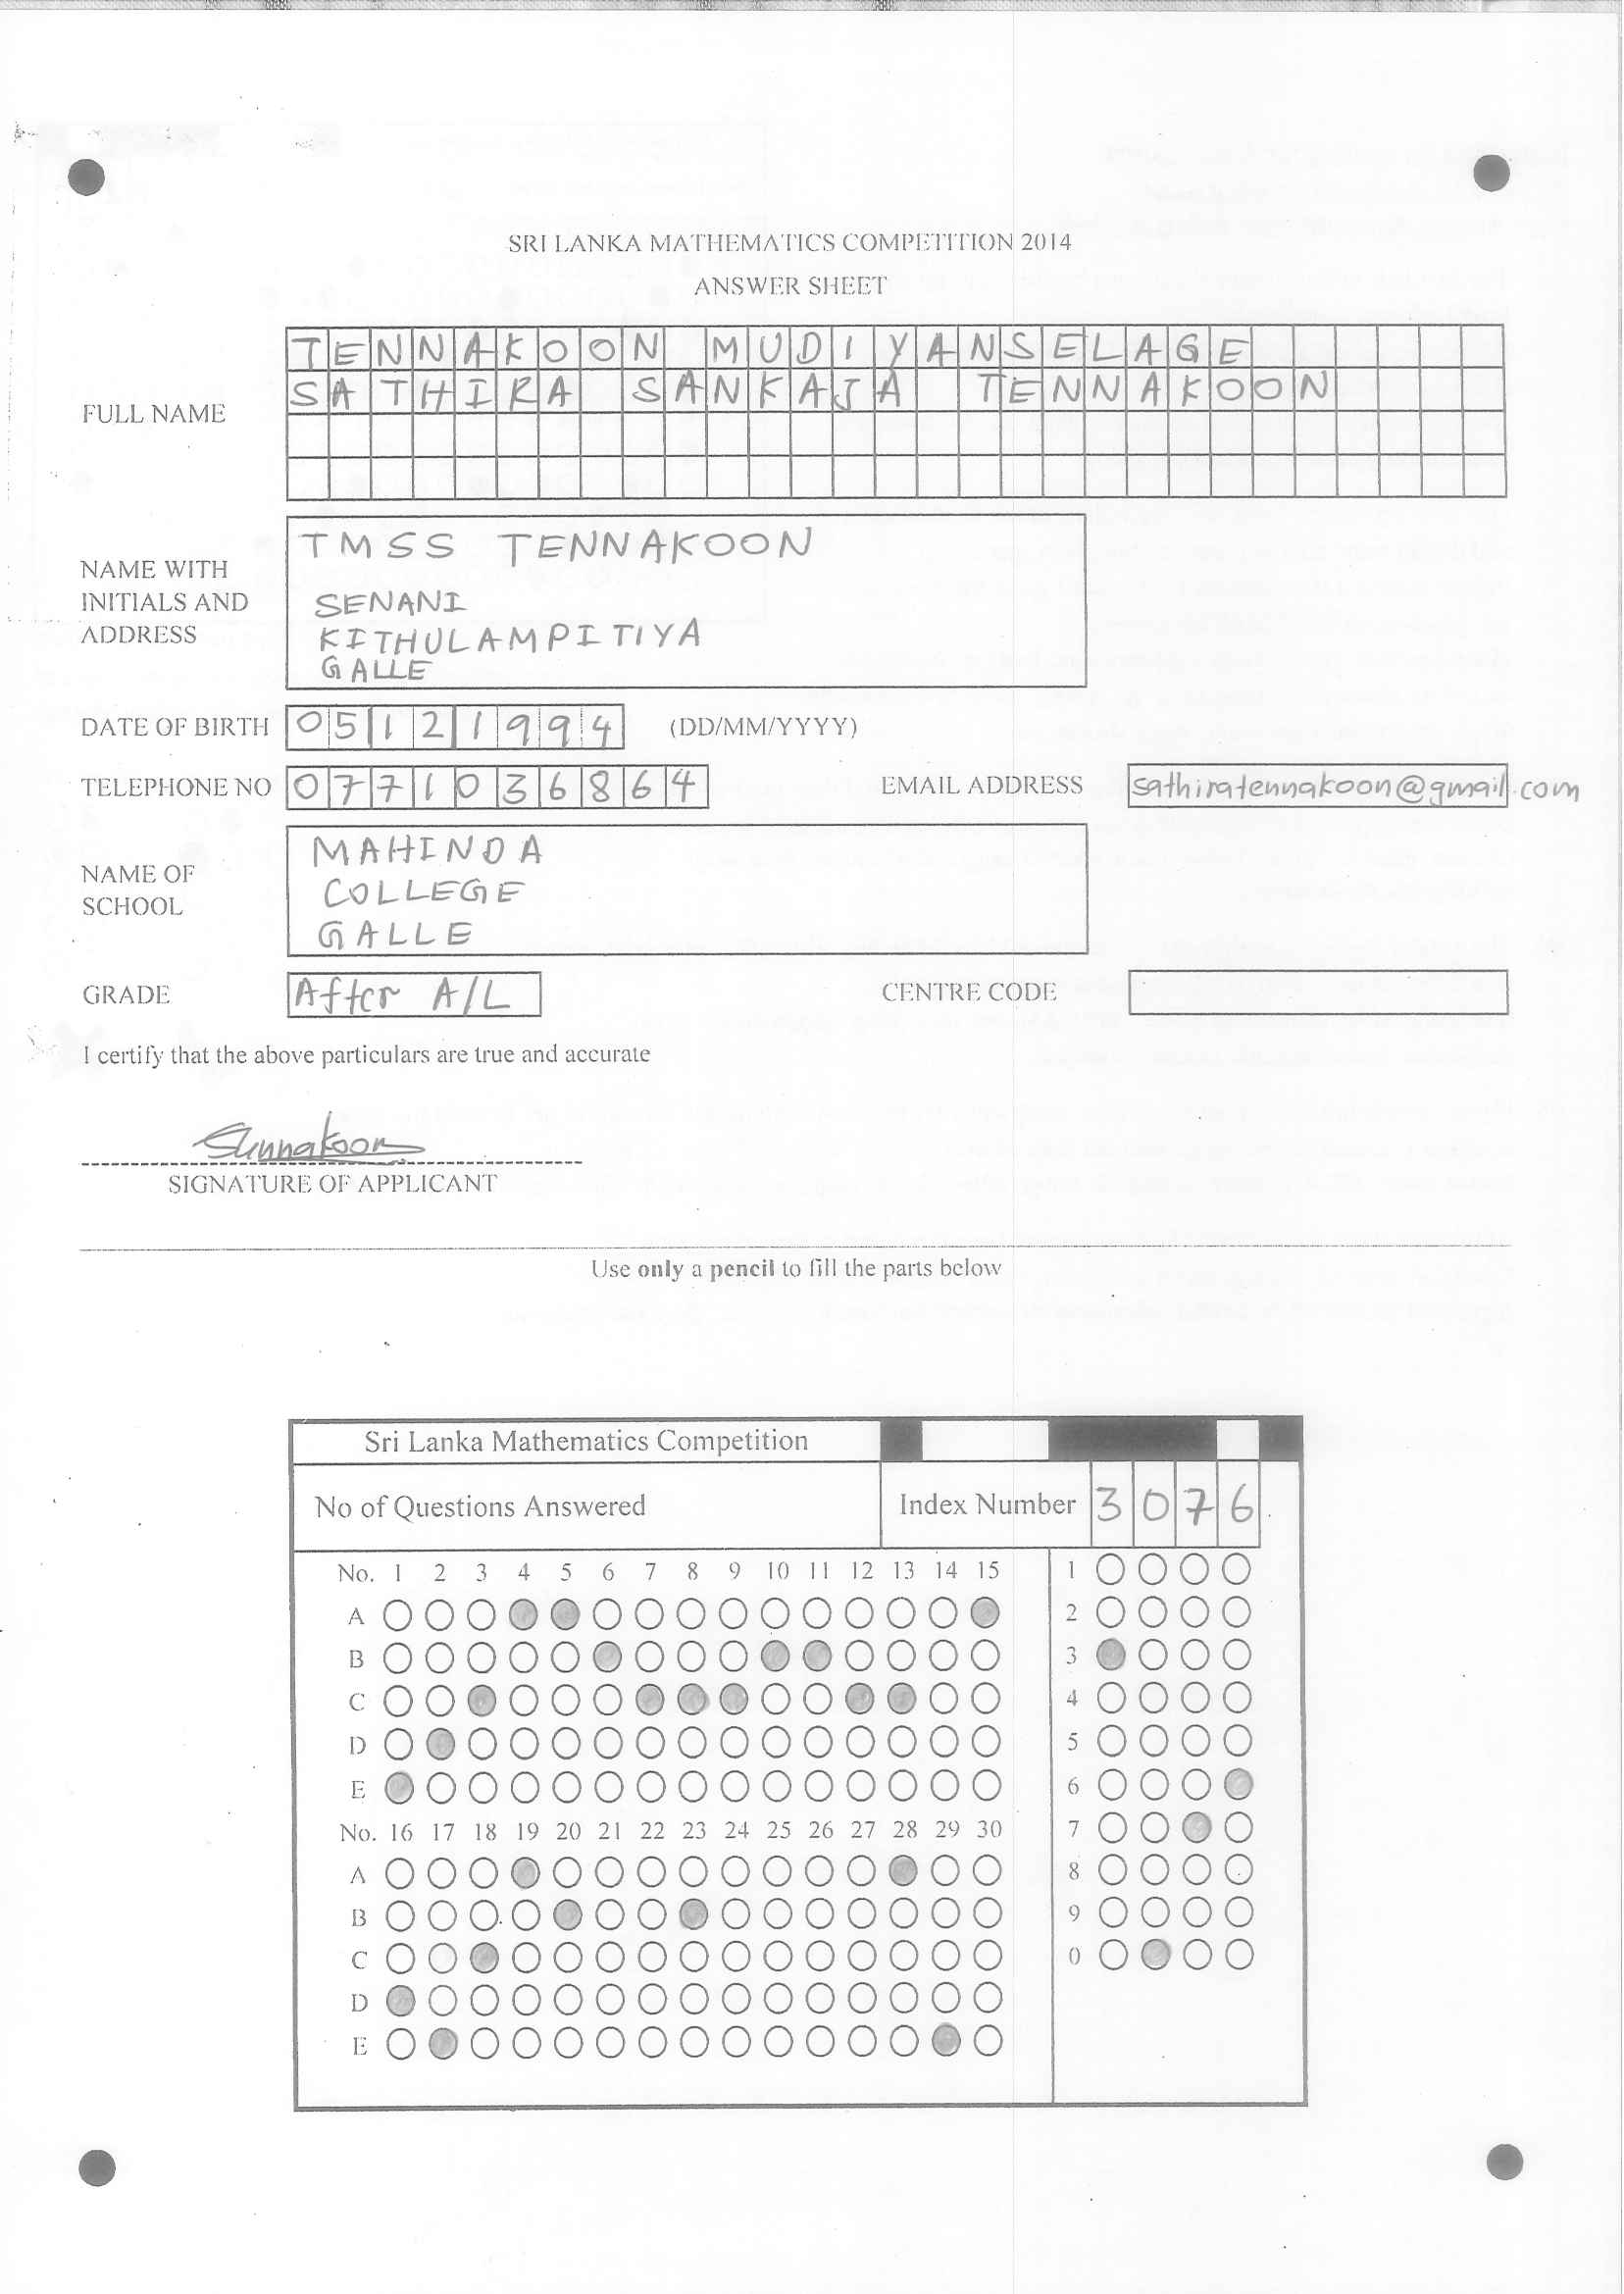 SRI LANKA MATHEMATICS COMPETITION 2014
ANSWER SHEET
FULL NAME
TENNAKOON MUDIYANSELAGE
SATHIRA SANKAJA TENNAKOON
NAME WITH INITIALS AND ADDRESS
TMSS TENNAKOON
SENANI
KITHULAMPITIYA
GALLE
DATE OF BIRTH 05121994 (DD/MM/YYYY)
TELEPHONE NO 0771036864 EMAIL ADDRESS sathiratennakoon@gmail.com
NAME OF SCHOOL
MAHINDA
COLLEGE
GALLE
GRADE After A/L CENTRE CODE
I certify that the above particulars are true and accurate
Stennakoon
SIGNATURE OF APPLICANT
Use only a pencil to fill the parts below
Sri Lanka Mathematics Competition
No of Questions Answered Index Number 3076
No. 1 2 3 4 5 6 7 8 9 10 11 12 13 14 15 1
A 2
B 3
C 4
D 5
E 6
No. 16 17 18 19 20 21 22 23 24 25 26 27 28 29 30 7
A 8
B 9
C 0
D
E